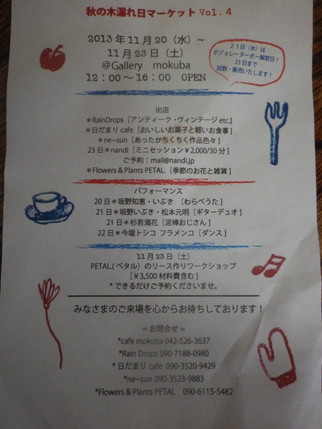 秋の木漏れ日マーケット Vol. 4
2013年11月20（水）～
11月23日（土）
@Gallery mokuba
12：00～16：00 OPEN
21日（木）は
ボジョレーヌーボー解禁日！
23日まで
試飲・販売いたします！
出店
*RainDrops［アンティーク・ヴィンテージ etc.］
*日だまり cafe［おいしいお菓子と軽いお食事］
*ne~sun［あったかちくちく作品色々］
23日*nandi［ミニセッション¥2,000/30分］
ご予約：mail@nandi.jp
*Flowers & Plants PETAL［季節のお花と雑貨］
パフォーマンス
20日*坂野知恵・いぶき ［わらべうた］
21日*坂野いぶき・松本元明［ギターデュオ］
21日*杉若満花［泥棒おじさん］
22日*今堀トシコ フラメンコ［ダンス］
11月23日（土）
PETAL(ペタル）のリース作りワークショップ
［¥3,500 材料費含む］
*できるだけご予約くださいませ。
みなさまのご来場を心からお待ちしております！
= お問合せ =
*cafe mokuba 042-526-3637
*Rain Drops 090-7188-0980
*日だまり cafe 090-3520-9429
*ne~sun 090-3523-9883
*Flowers & Plants PETAL 090-6115-5482